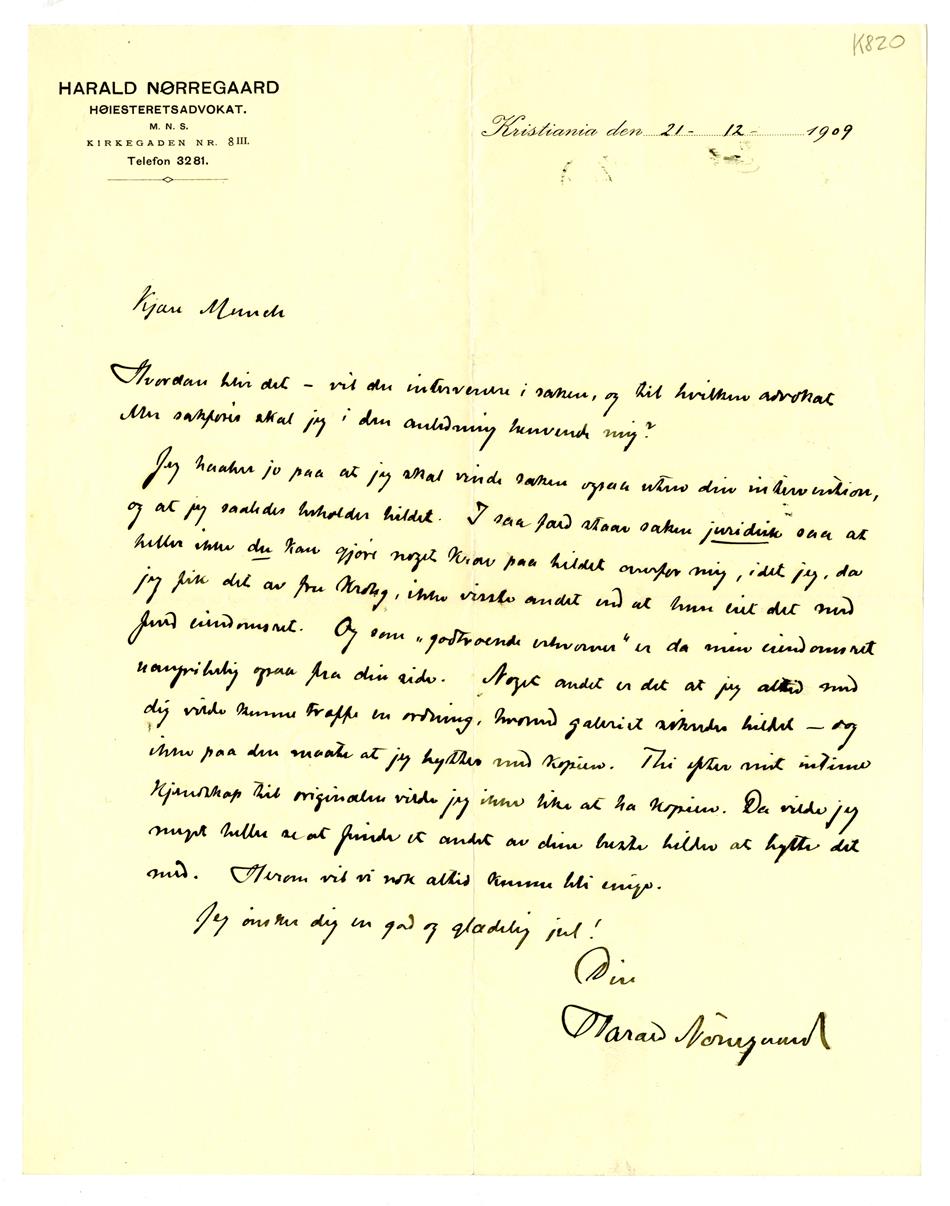 K820
HARALD NØRREGAARD
HØIESTERETSADVOKAT.
M. N. S.
KIRKEGADEN NR. 8 III.
Telefon 3281.
Kristiania den 21- 12- 1909
Kjære Munch
Hvordan blir det – vil du intervenere i saken, og til hvilken advokat
eller sakfører skal jeg i den anledning henvende mig?
Jeg haaber jo paa at jeg skal vinde saken ogsaa uten din intervention,
og at jeg saaledes beholder bildet. I saa fald staar saken juridisk saa at
heller ikke du kan gjøre noget krav paa bildet overfor mig, idet jeg, da
jeg fik det av fru Krohg, ikke visste andet end at hun eiet det med
fuld eiendomsret. Og som „godtroende erhverver" er da min eiendomsret
uangribelig ogsaa fra din side. Noget andet er det at jeg altid med
dig vilde kunne træffe en ordning, hvorved galeriet sikredes bildet – dog
ikke paa den maate at jeg byttes med kopien. Thi efter mit intime
kjendskap til originalen vilde jeg ikke like at ha kopien. Da vilde jeg
meget heller se at finde et andet av dine beste bilder at bytte det
med. Herom vil vi nok altid kunne bli enige.
Jeg ønsker dig en god og glædelig jul!
Din
Harald Nörregaard